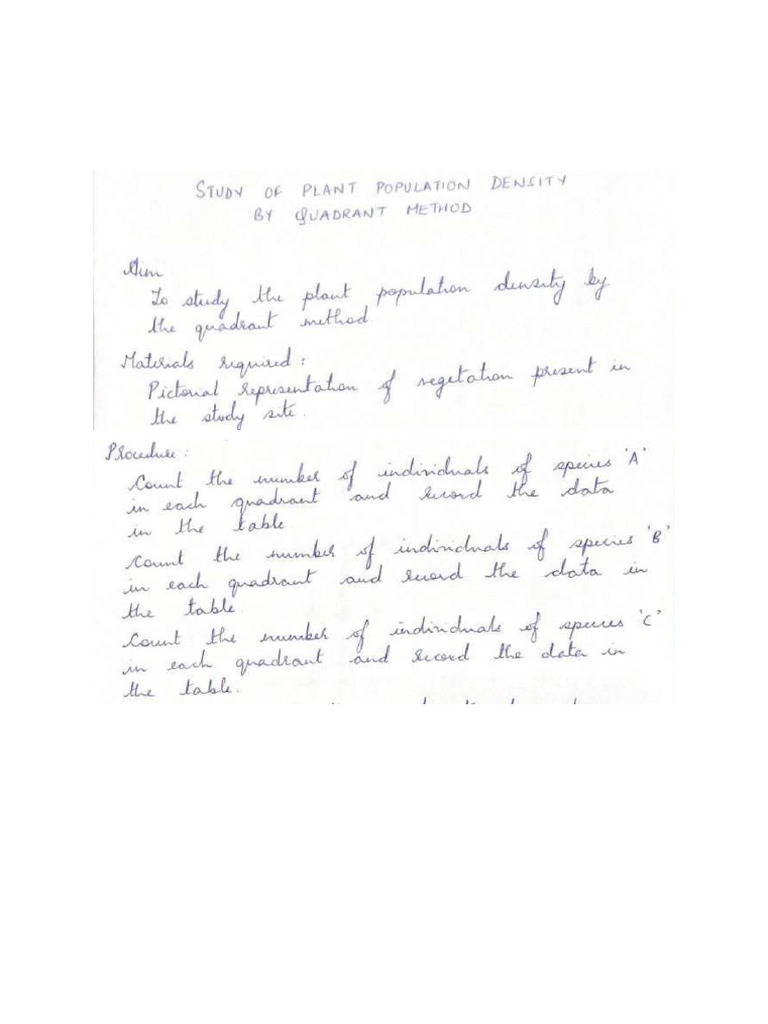 STUDY OF PLANT POPULATION DENSITY
BY QUADRANT METHOD
Aim
To study the plant population density by
the quadrant method
Materials required :
Pictorial representation of vegetation present in
the study site.
Procedure :
Count the number of individuals of species 'A'
in each quadrant and record the data
in the table
Count the number of individuals of species 'B'
in each quadrant and record the data in
the table.
Count the number of individuals of species 'C'
in each quadrant and record the data in
the table.